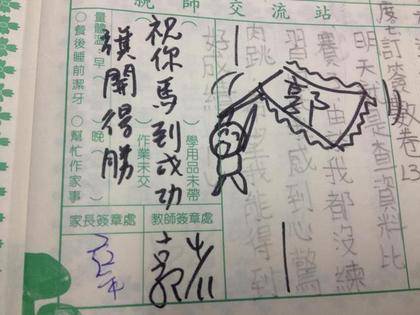 親師交流站
數卷13
明天是查資料比
賽由我都沒練
習感到心驚
肉跳 我能得到
好成
郭
( )學用品未帶
( )作業未交
祝你馬到成功
旗開得勝
量體溫:早( )晚( )
○餐後睡前潔牙 ○幫忙作家事
教師簽章處
郭 4/11
家長簽章處